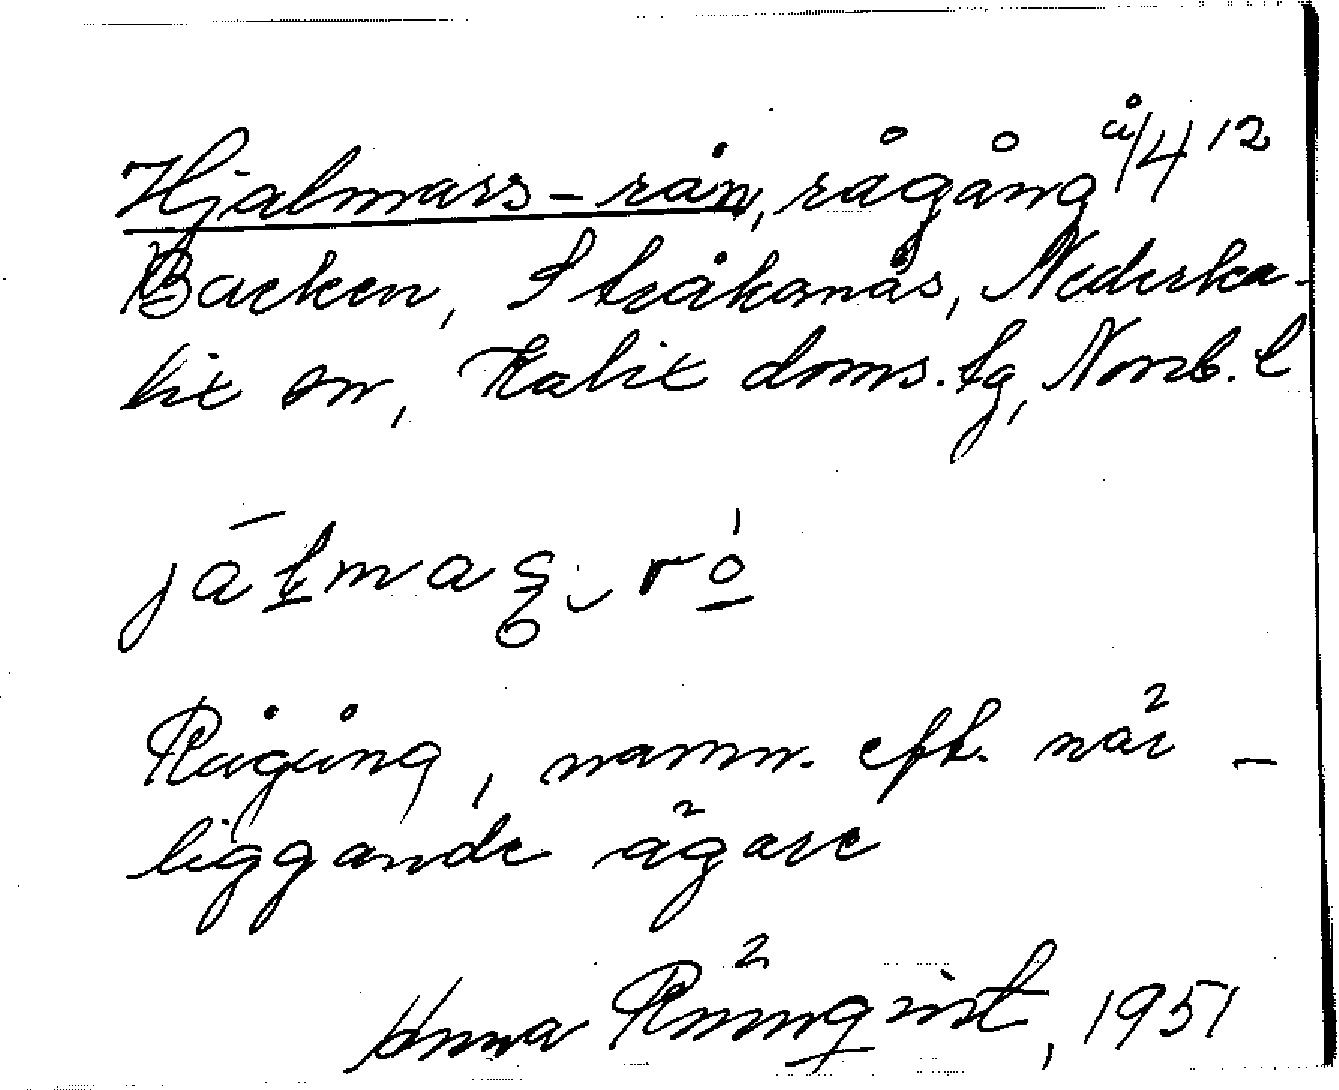 Hjalmars-rån, rågång å/4 12
Backen, Stråkanäs, Nederka-
lix sn, Kalix doms. tg, Norrb. l
Rågång, namn. eft. när-
liggande ägare
Anna Rönnqvist, 1951